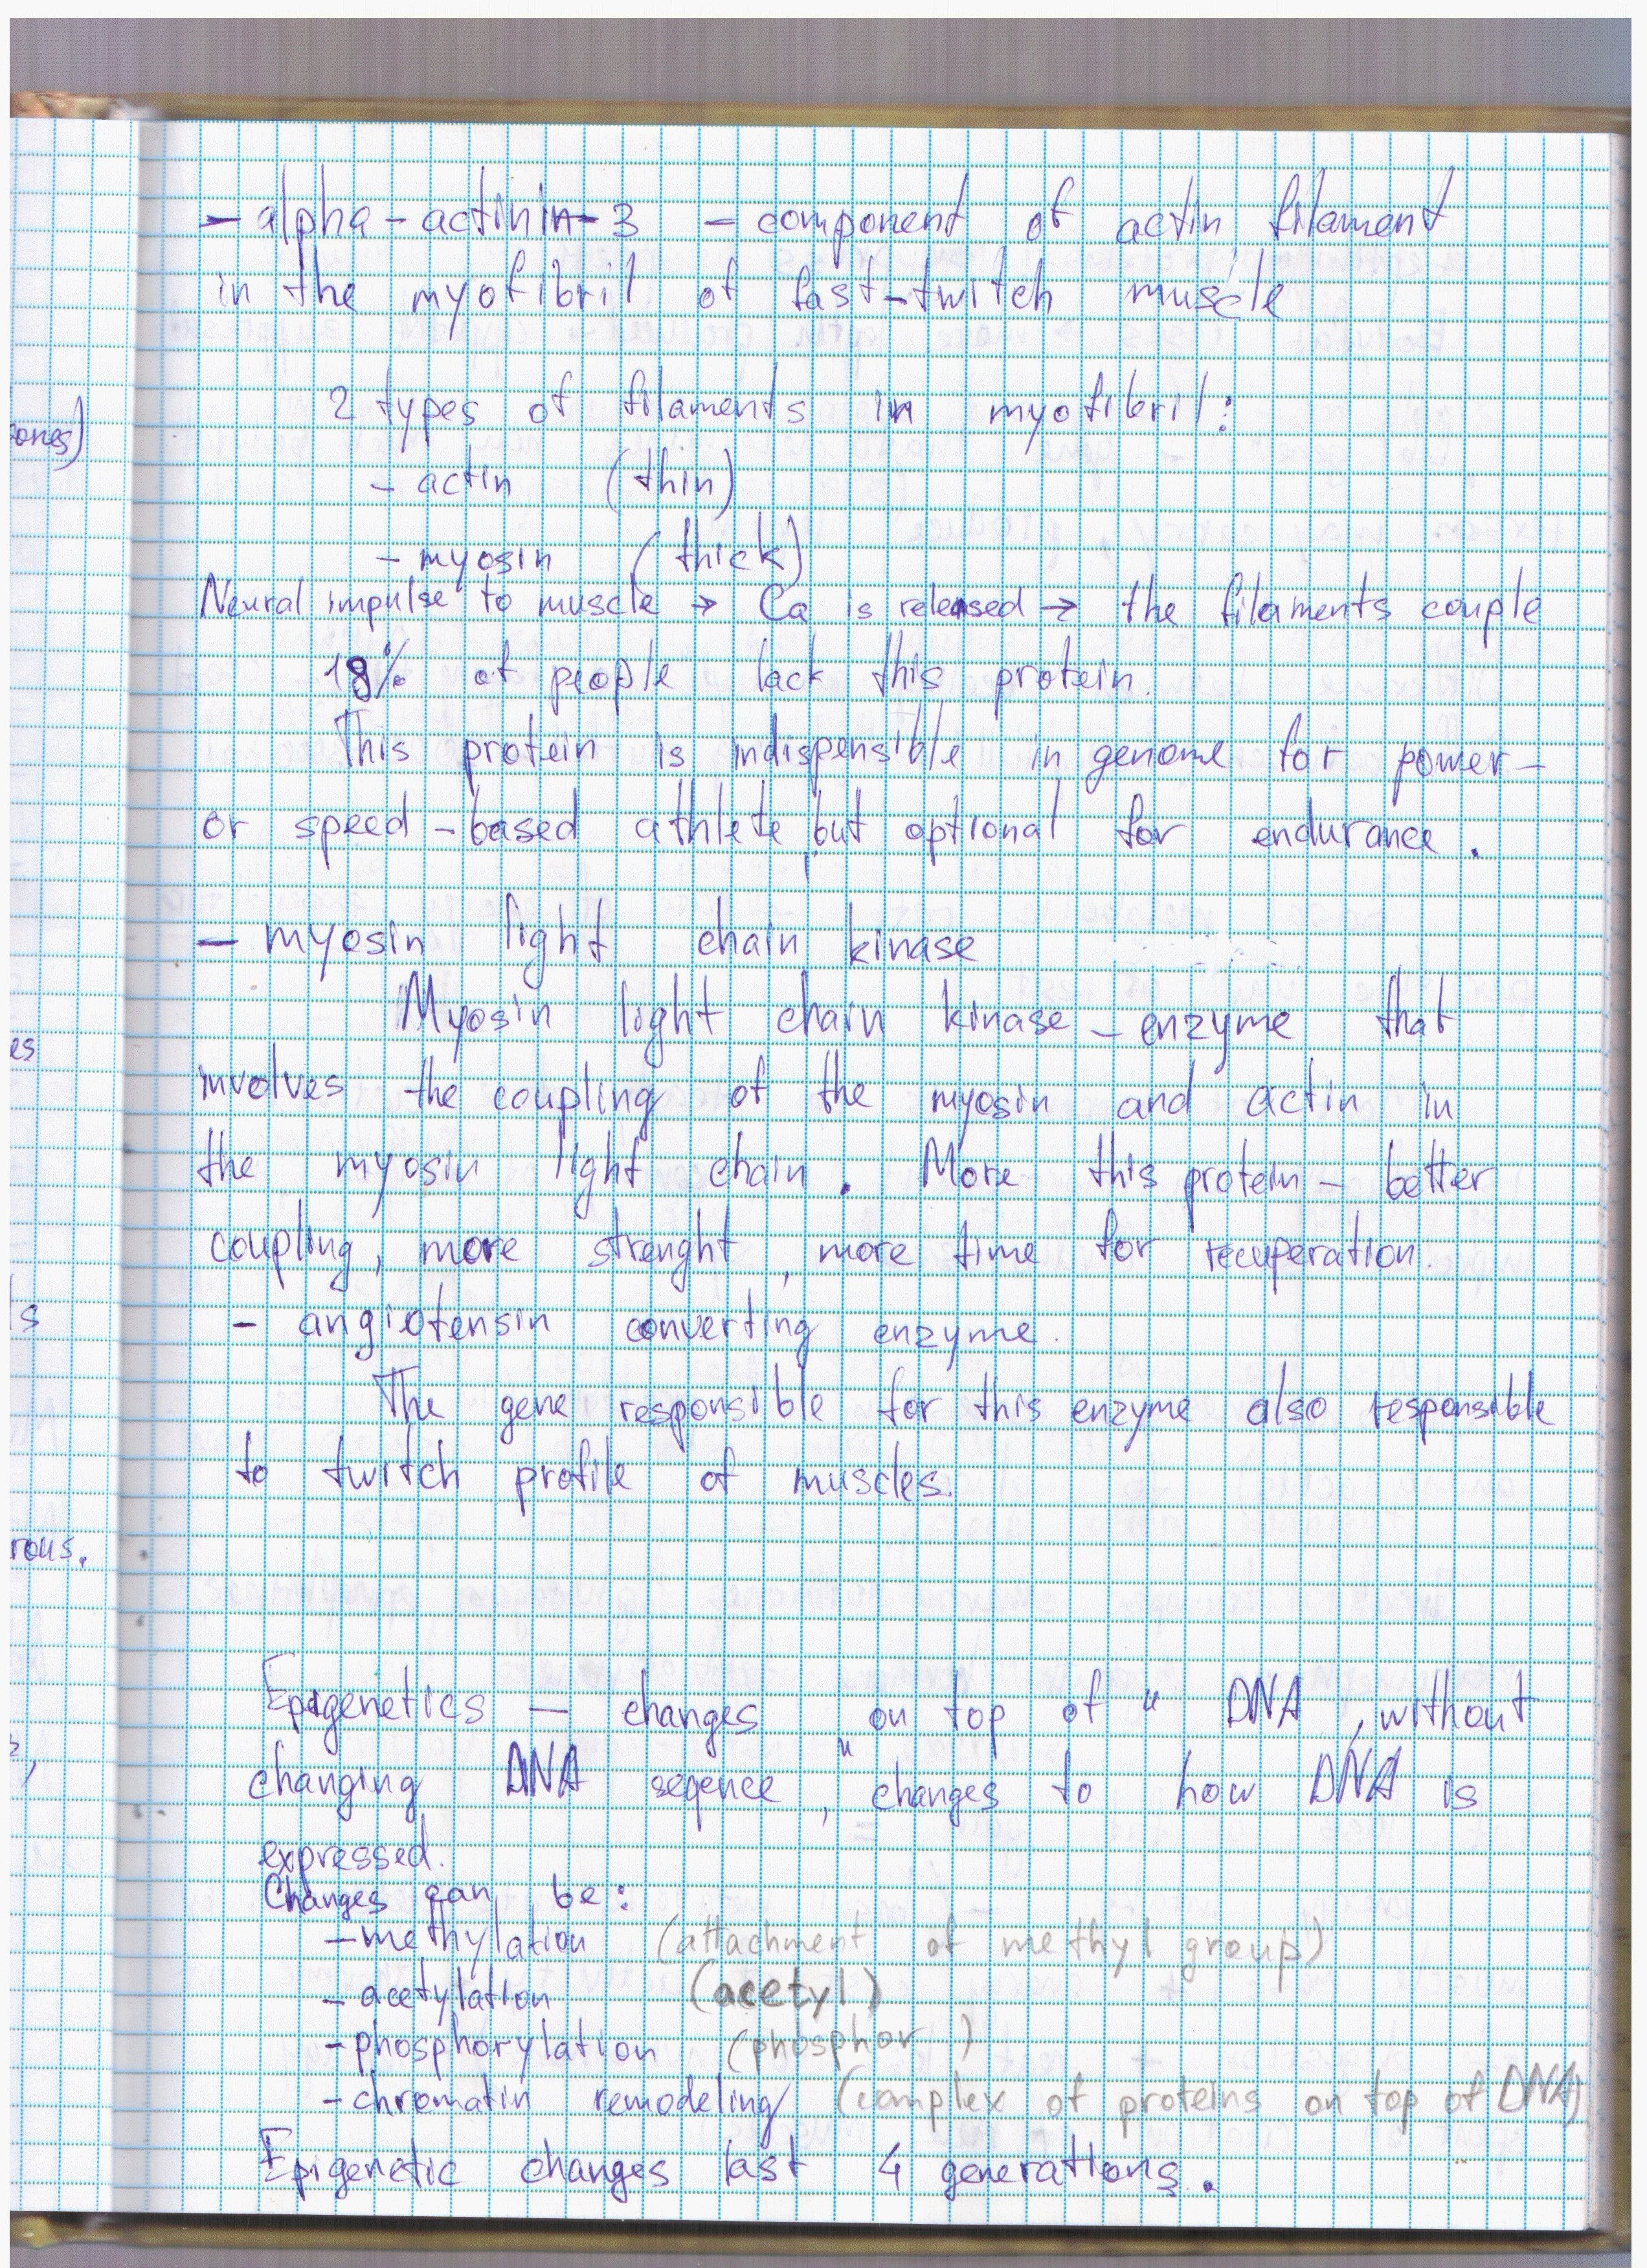 - alpha-actinin-3 - component of actin filament
in the myofibril of fast-twitch muscle
2 types of filaments in myofibril:
- actin (thin)
ones)
- myosin (thick)
Neural impulse to muscle → Ca is released → the filaments couple
18% of people lack this protein.
This protein is indispensible in genome for power-
or speed-based athlete, but optional for endurance.
- myosin light chain kinase
Myosin light chain kinase - enzyme that
es
involves the coupling of the myosin and actin in
the myosin light chain. More this protein - better
coupling, more strenght, more time for recuperation.
ls
- angiotensin converting enzyme.
The gene responsible for this enzyme also responsible
to twitch profile of muscles.
rous.
Epigenetics - changes "on top of" DNA, without
changing DNA seqence, changes to how DNA is
expressed.
Changes can be:
- methylation (attachment of methyl group)
- acetylation (acetyl)
- phosphorylation (phosphor )
- chromatin remodeling (complex of proteins on top of DNA)
Epigenetic changes last 4 generations.